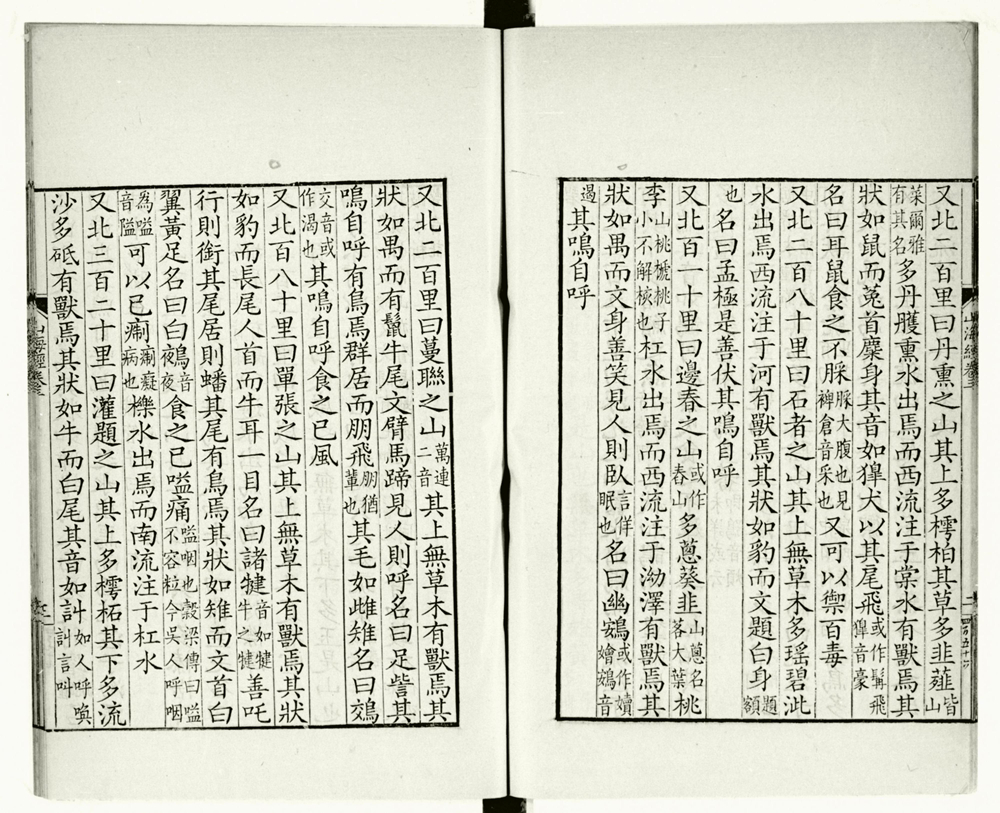 又北二百里曰丹熏之山其上多樗柏其草多韭薤皆山
菜爾雅有其名多丹雘熏水出焉而西流注于棠水有獸焉其
狀如鼠而菟首麋身其音如獋犬以其尾飛或作髯飛獋音豪
名曰耳鼠食之不䐆䐆大腹也見裨倉音采也又可以禦百毒
又北二百八十里曰石者之山其上無草木多瑤碧泚
水出焉西流注于河有獸焉其狀如豹而文題白身題額
也名曰孟極是善伏其鳴自呼
又北百一十里曰邊春之山或作舂山多蔥葵韭山蔥名茖大葉桃
李山桃榹桃子小不解核也杠水出焉而西流注于泑澤有獸焉其
狀如禺而文身善笑見人則臥言佯眠也名曰幽鴳或作嬻嬒鴳音
遏其鳴自呼
又北二百里曰蔓聯之山萬連二音其上無草木有獸焉其
狀如禺而有鬣牛尾文臂馬蹄見人則呼名曰足訾其
鳴自呼有鳥焉群居而朋飛朋猶輩也其毛如雌雉名曰鵁
交音或作渴也其鳴自呼食之已風
又北百八十里曰單張之山其上無草木有獸焉其狀
如豹而長尾人首而牛耳一目名曰諸犍音如犍牛之犍善吒
行則銜其尾居則蟠其尾有鳥焉其狀如雉而文首白
翼黃足名曰白鵺音夜夜食之已嗌痛嗌咽也穀梁傳曰嗌不容粒今吳人呼咽
為嗌音隘可以已痸痸癡病也櫟水出焉而南流注于杠水
又北三百二十里曰灌題之山其上多樗柘其下多流
沙多砥有獸焉其狀如牛而白尾其音如訆如人呼喚訆言叫
山海經卷三